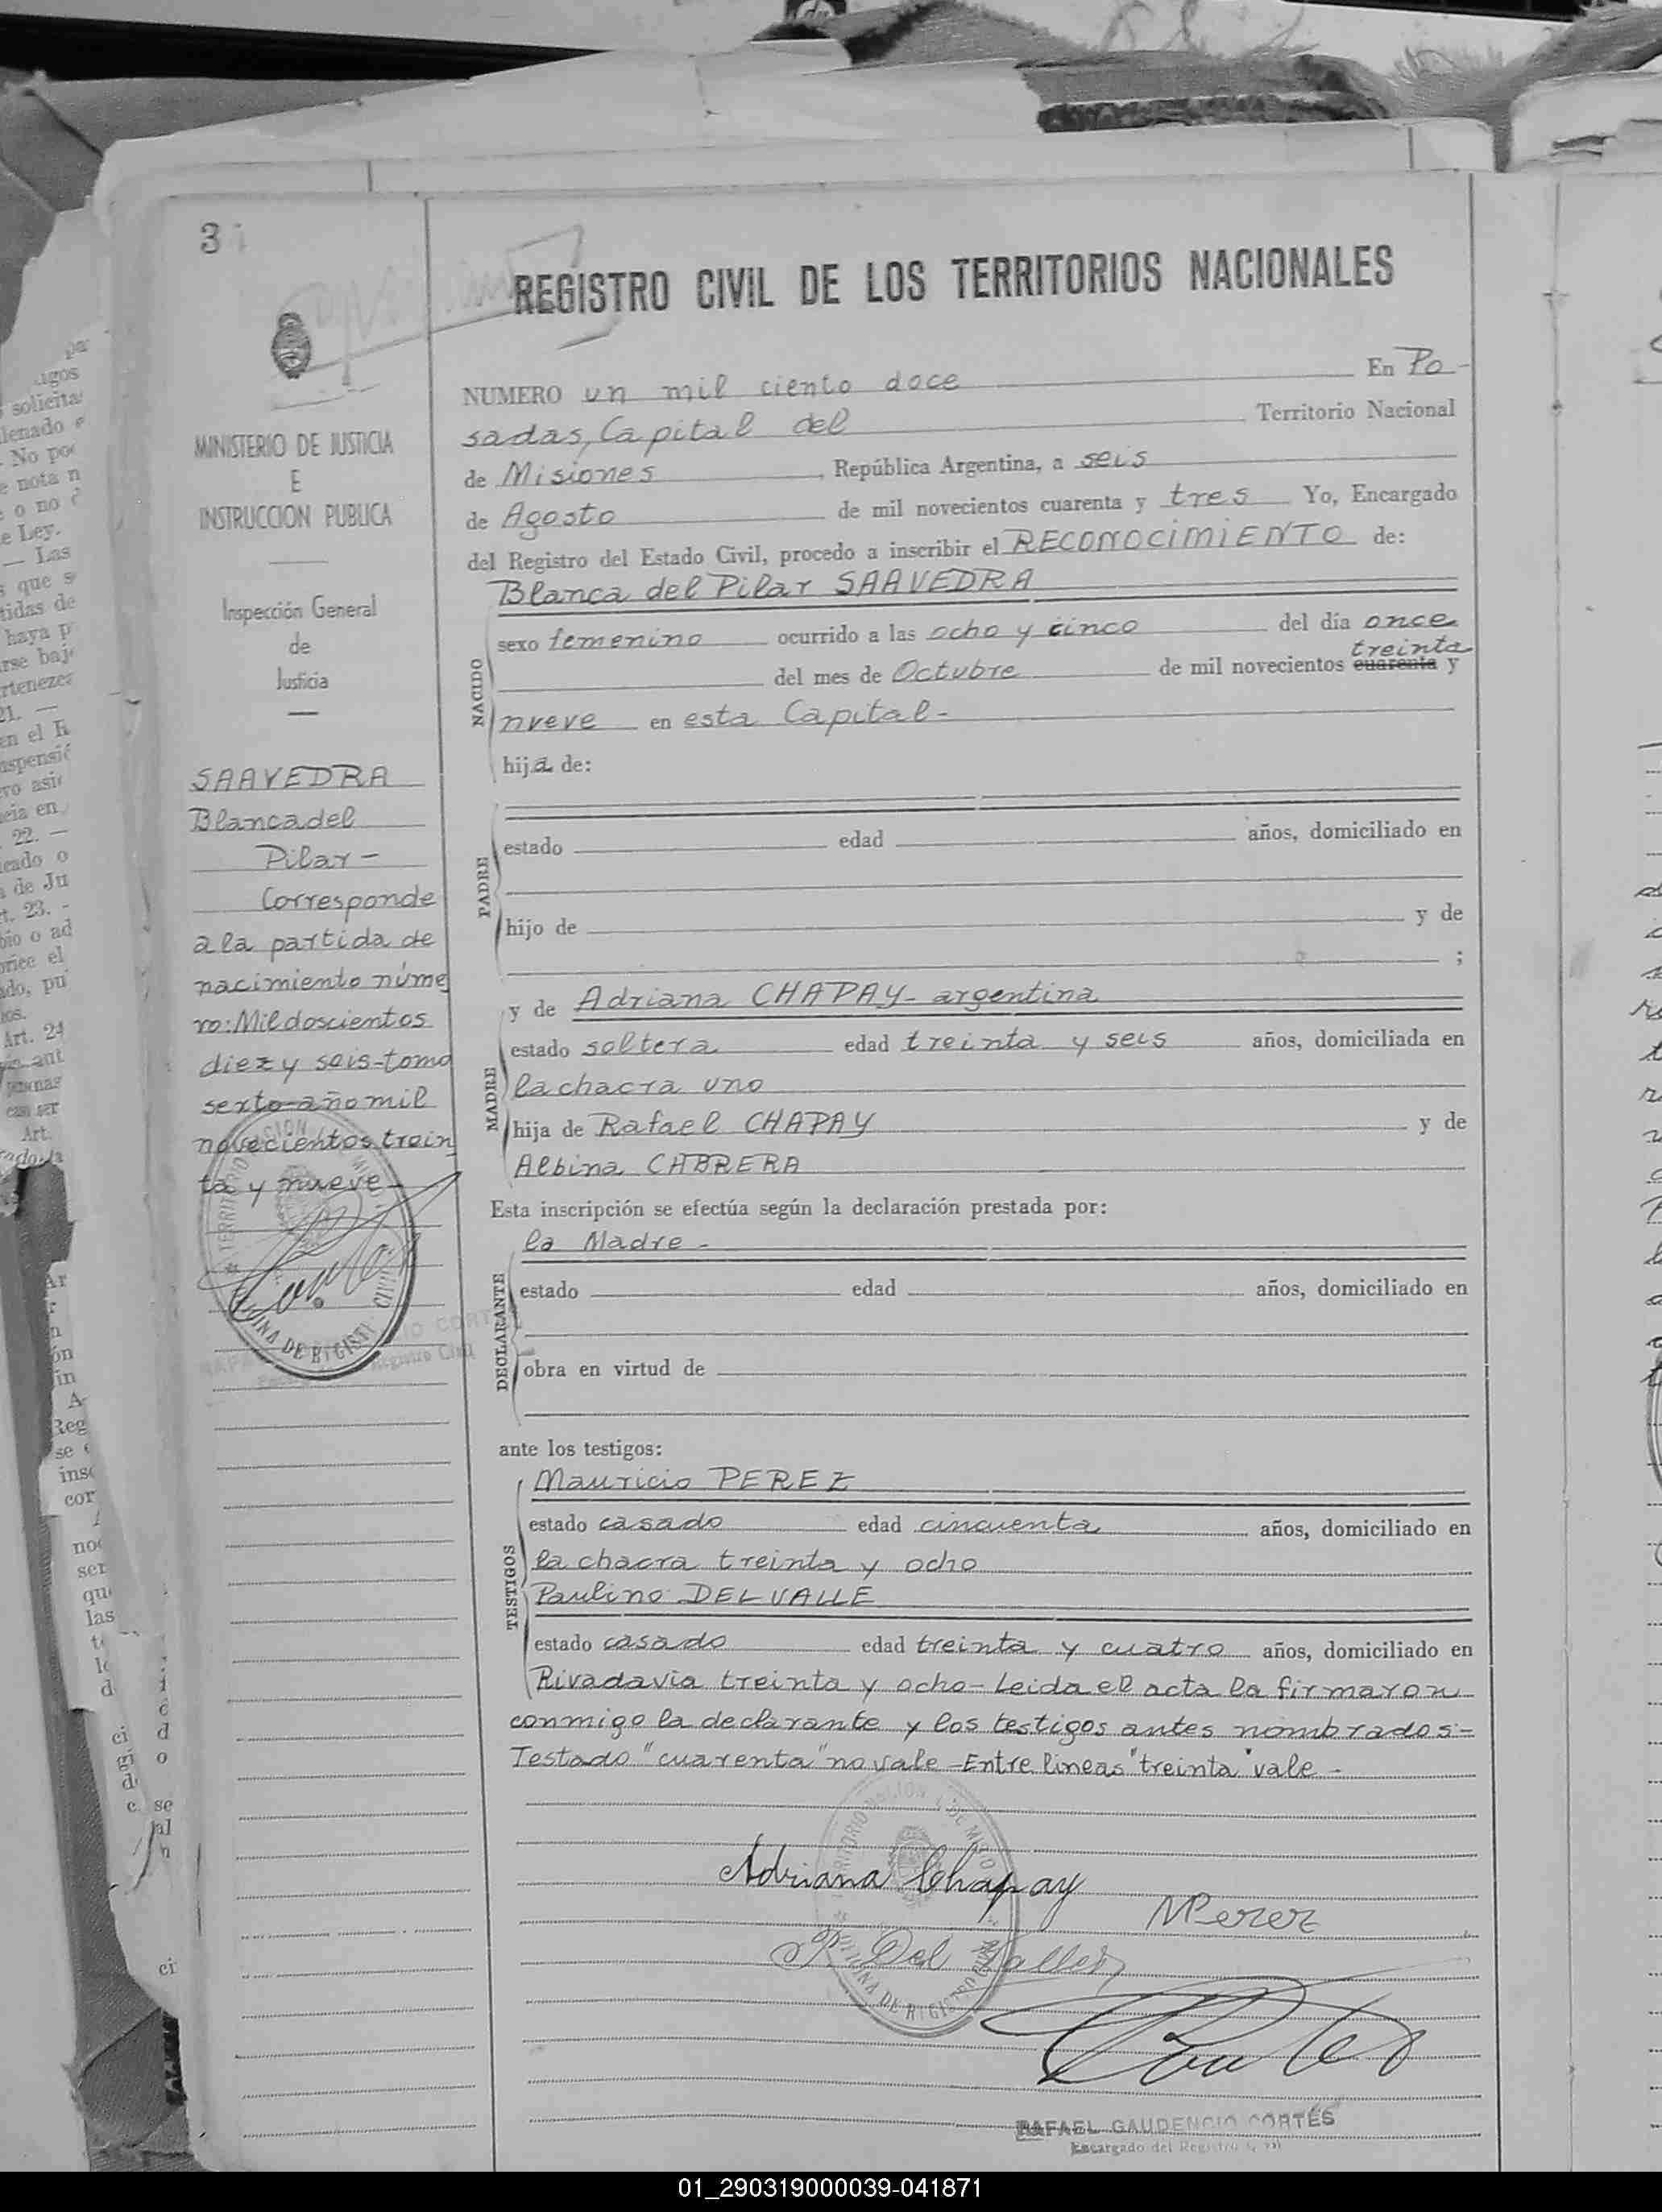 3
REGISTRO CIVIL DE LOS TERRITORIOS NACIONALES
MINISTERIO DE JUSTICIA
E
INSTRUCCION PUBLICA
Inspección General
de
Justicia
SAAVEDRA
Blanca del
Pilar-
Corresponde
a la partida de
nacimiento núme
ro: Mil doscientos
diez y seis-tomo
sexto-año mil
novecientos trein
ta y nueve-
NUMERO un mil ciento doce En Po-
sadas, Capital del Territorio Nacional
de Misiones, República Argentina, a seis
de Agosto de mil novecientos cuarenta y tres Yo, Encargado
del Registro del Estado Civil, procedo a inscribir el RECONOCIMIENTO de:
Blanca del Pilar SAAVEDRA
NACIDO
sexo femenino ocurrido a las ocho y cinco del día once
treinta
del mes de Octubre de mil novecientos cuarenta y
nueve en esta Capital-
hija de:
PADRE
estado edad años, domiciliado en
hijo de y de
;
y de Adriana CHAPAY- argentina
MADRE
estado soltera edad treinta y seis años, domiciliada en
la chacra uno
hija de Rafael CHAPAY y de
Albina CABRERA
Esta inscripción se efectúa según la declaración prestada por:
la Madre-
DECLARANTE
estado edad años, domiciliado en
obra en virtud de
ante los testigos:
Mauricio PEREZ
TESTIGOS
estado casado edad cincuenta años, domiciliado en
la chacra treinta y ocho
Paulino DEL VALLE
estado casado edad treinta y cuatro años, domiciliado en
Rivadavia treinta y ocho- Leida el acta la firmaron
conmigo la declarante y los testigos antes nombrados:-
Testado "cuarenta" no vale-Entre lineas "treinta" vale-
Adriana Chapay
MPerez
P. Del Valle
RAFAEL GAUDENCIO CORTÉS
Encargado del Registro
01_290319000039-041871